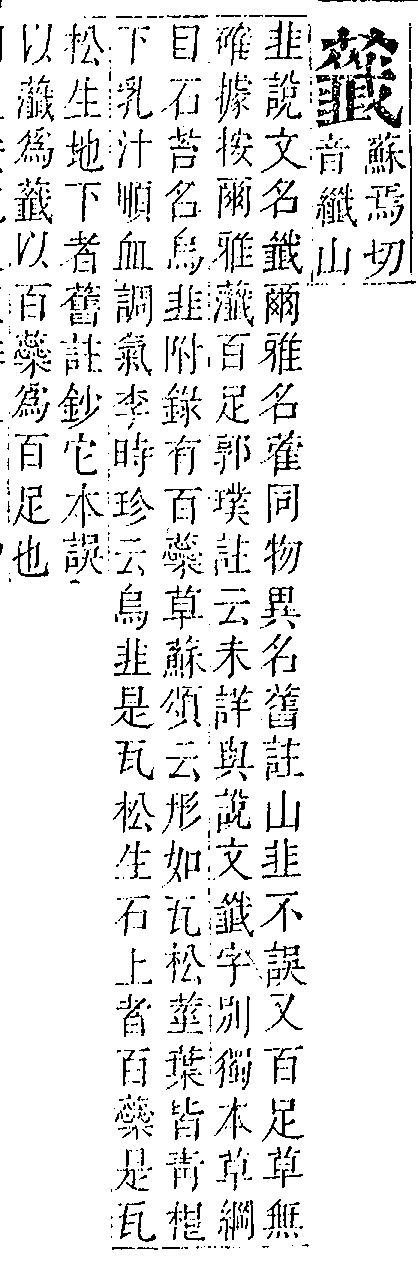 蘇焉切
音纖山
韭說文名韱爾雅名蒮同物異名舊註山韭不誤又百足草無
確據按爾雅虃百足郭璞註云未詳與說文韱字別獨本草綱
目石苔名烏韭附錄有百蘂草蘇頌云形如瓦松莖葉皆青根
下乳汁順血調氣李時珍云烏韭是瓦松生石上者百蘂是瓦
松生地下者舊註鈔它本誤
以虃為以百蘂為百足也